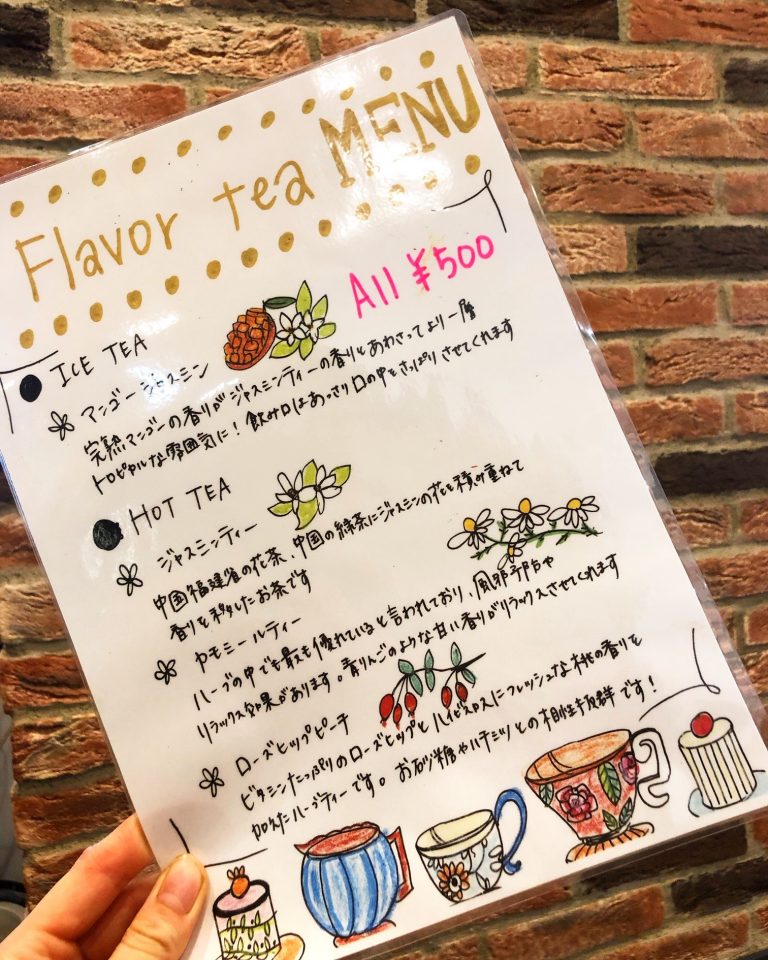 Flavor tea MENU
All ¥500
ICE TEA
マンゴー ジャスミン
完熟マンゴーの香りがジャスミンティーの香りとあわさってより一層
トロピカルな雰囲気に！飲み口はあっさり口の中をさっぱりさせてくれます
HOT TEA
ジャスミンティー
中国福建省の花茶、中国の緑茶にジャスミンの花を積み重ねて
香りを移したお茶です
カモミールティー
ハーブの中でも最も優れていると言われており、風邪予防や
リラックス効果があります。青りんごのような甘い香りがリラックスさせてくれます
ローズヒップピーチ
ビタミンたっぷりのローズヒップとハイビスカスにフレッシュな桃の香りを
加えたハーブティーです。お砂糖やハチミツとの相性抜群です！